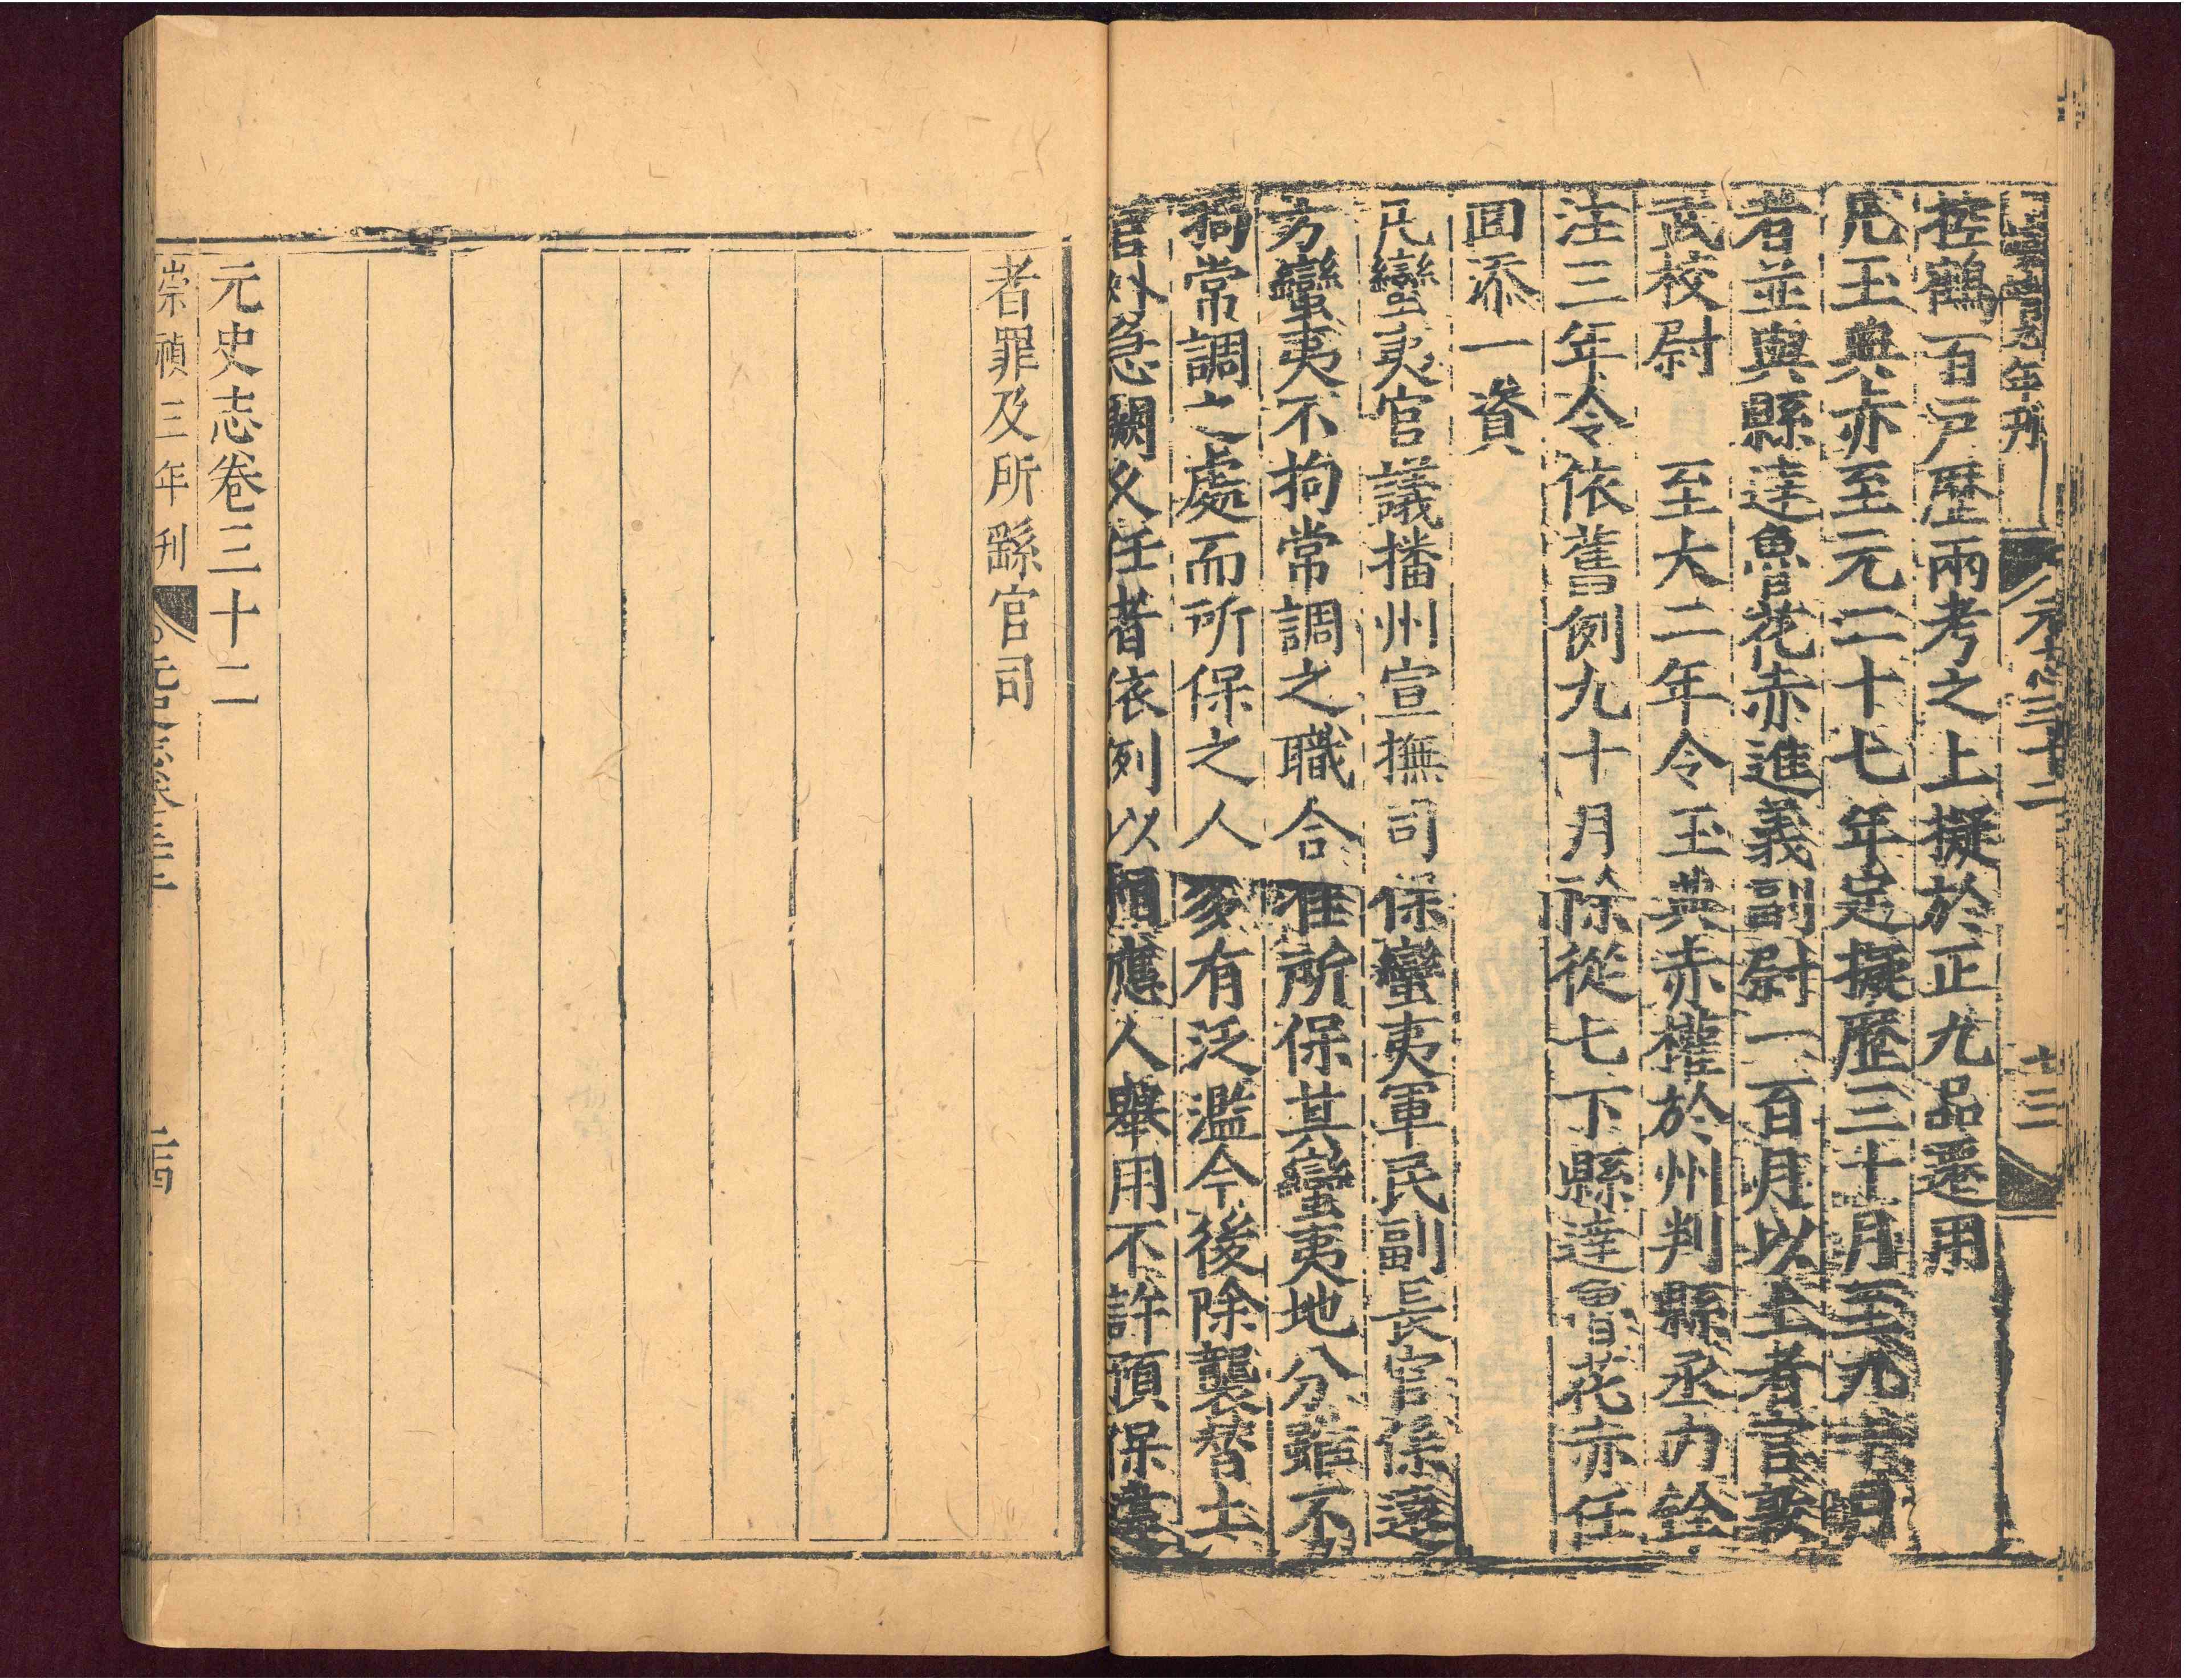 年刊 元志三十二 十三
控鶴百戶歷兩考之上擬於正九品遷用
凡玉典赤至元二十七年定擬歷三十月至九十月
者並與縣達魯花赤進義副尉一百月以上者官敦
武校尉 至大二年令玉典赤權於州判縣丞內銓
注三年令依舊例九十月除從七下縣達魯花赤任
回添一資
凡蠻夷官議播州宣撫司保蠻夷軍民副長官係遠
方蠻夷不拘常調之職合准所保其蠻夷地分雖不
拘常調之處而所保之人多有泛濫今後除襲替土
官外急闕久任者依例以相應人舉用不許預保違
者罪及所繇官司
元史志卷三十二
崇禎三年刊